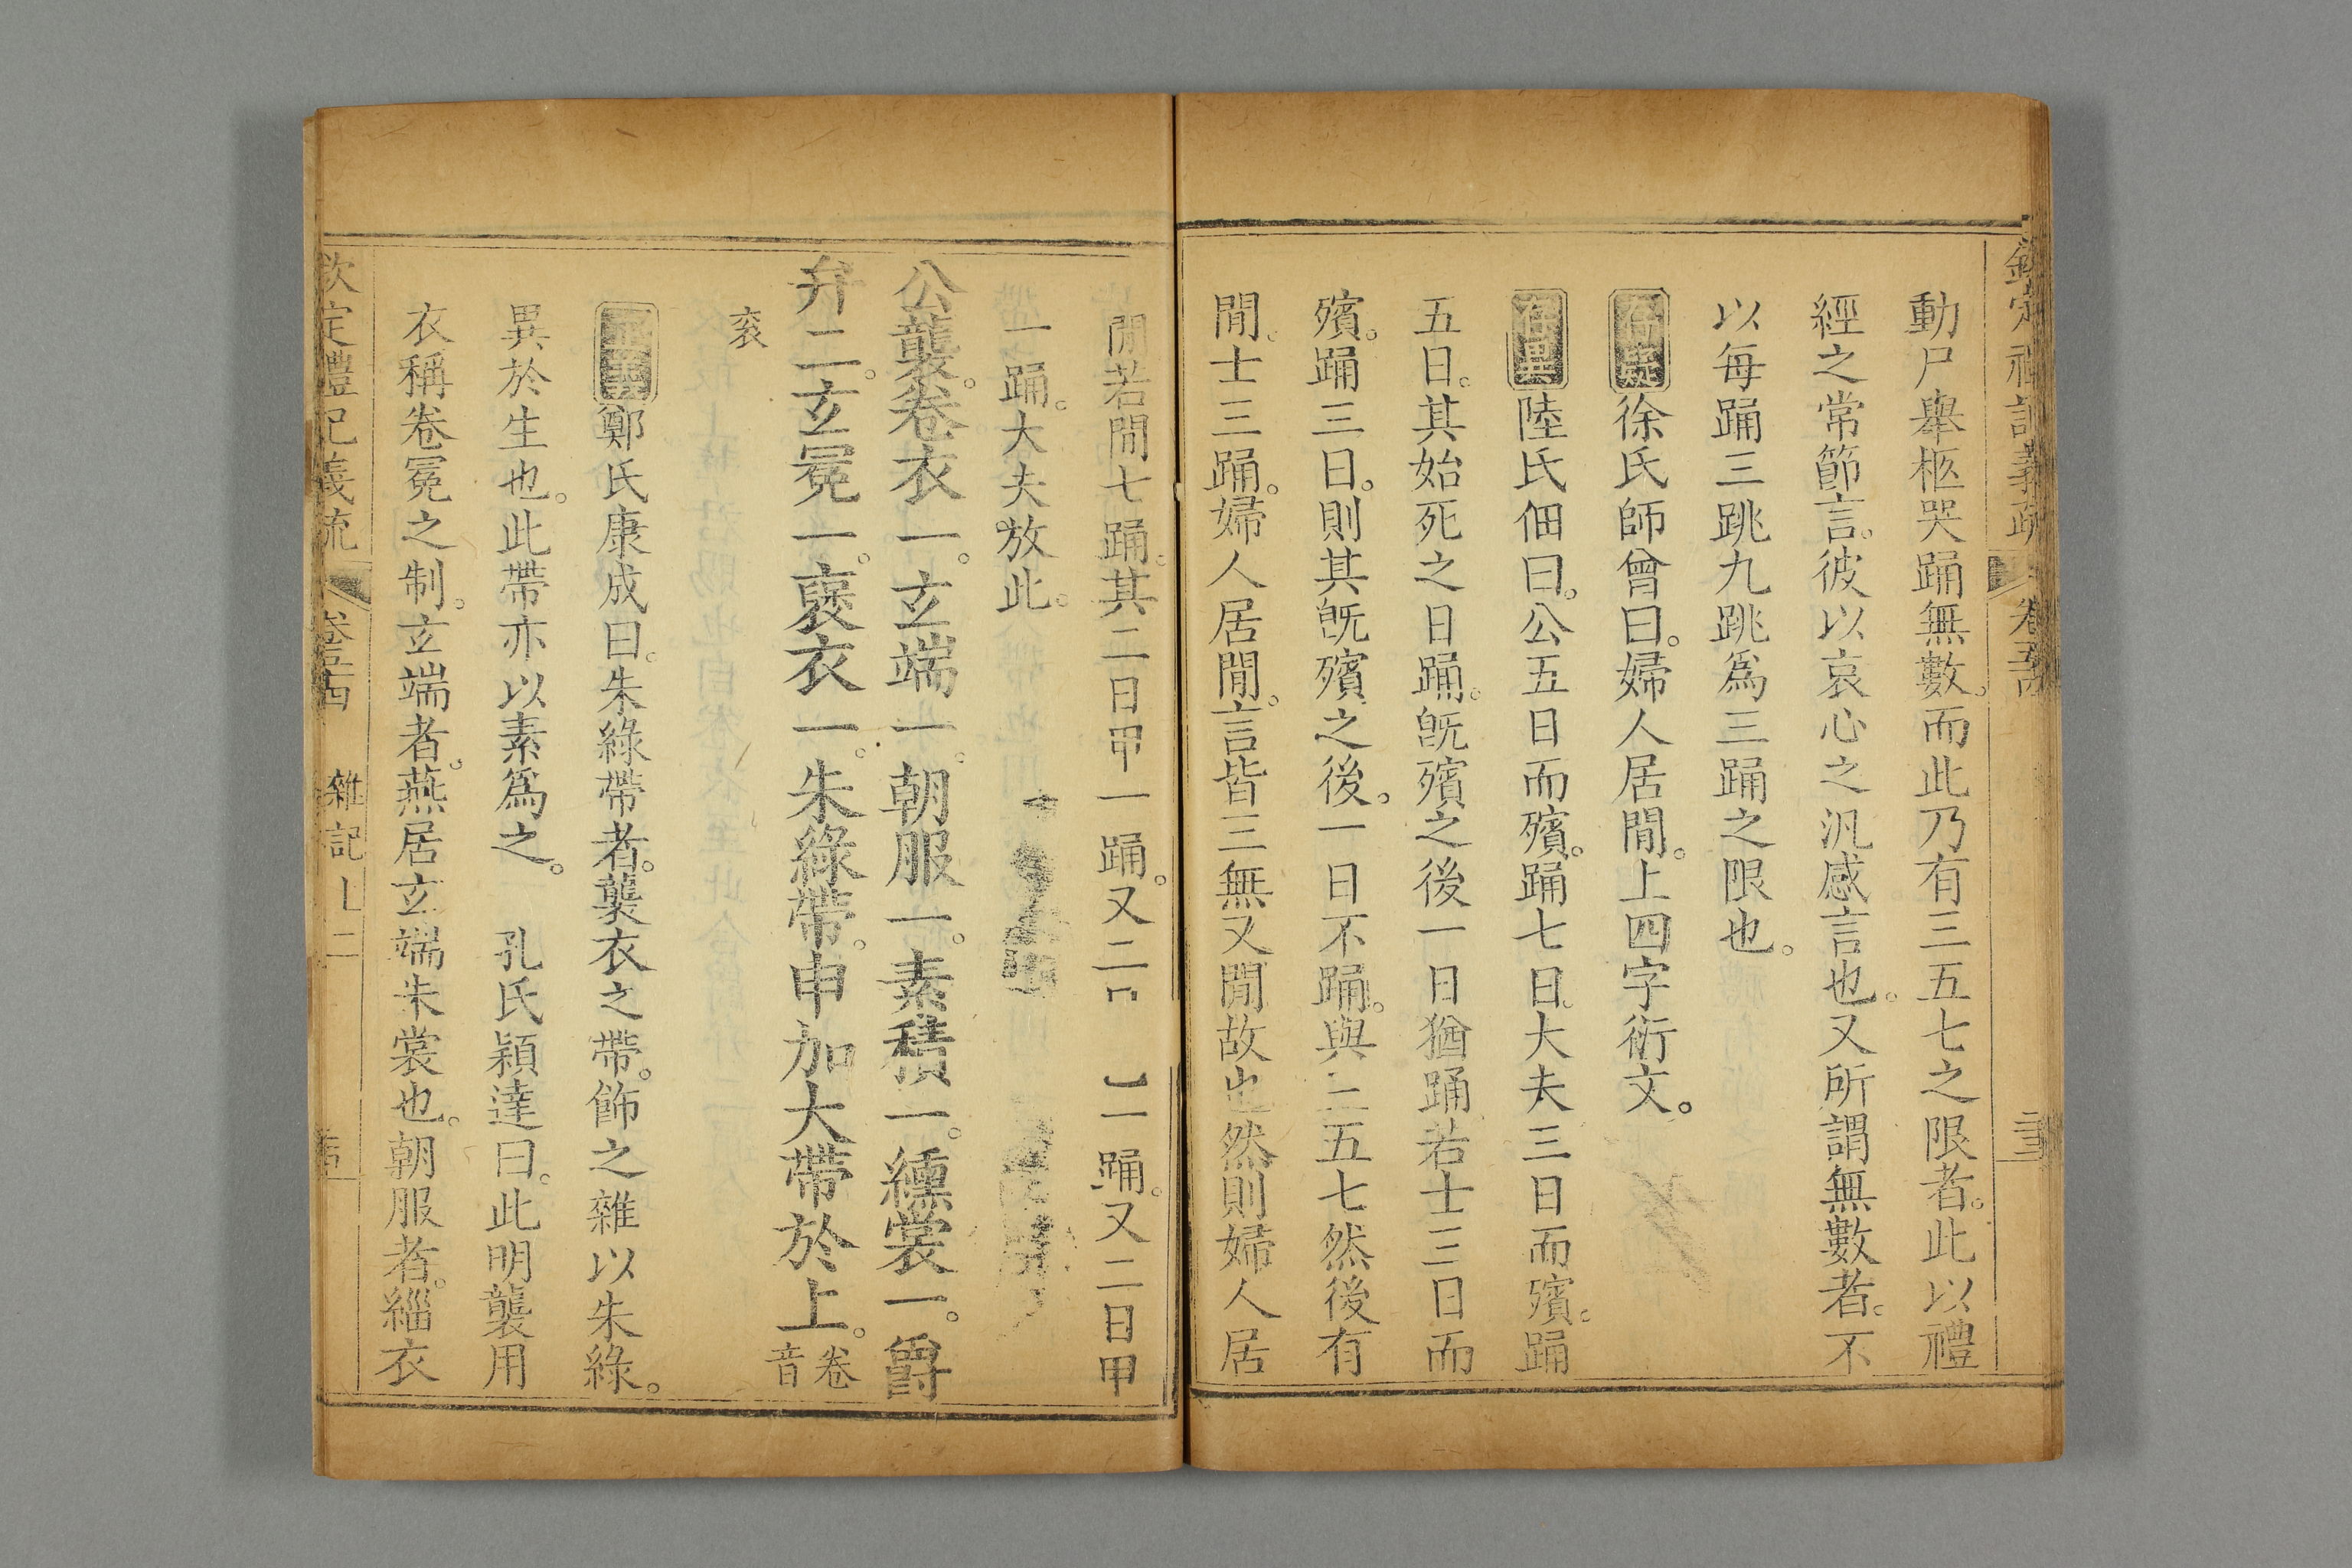 欽定禮記義疏 卷五十四
動尸舉柩哭踊無數。而此乃有三五七之限者。此以禮
經之常節言。彼以哀心之汎感言也。又所謂無數者。不
以每踊三跳九跳為三踊之限也。
存疑 徐氏師曾曰。婦人居閒。上四字衍文。
存異 陸氏佃曰。公五日而殯。踊七日。大夫三日而殯。踊
五日。其始死之日踊。旣殯之後一日猶踊若士三日而
殯。踊三日。則其旣殯之後。一日不踊。與三五七然後有
閒。士三踊。婦人居閒。言皆三無又閒故也然則婦人居
閒若閒七踊。其二日甲一踊。又二日 一踊。又二日甲
一踊。大夫放此。
公襲。卷衣一。玄端一。朝服一。素積一。纁裳一。爵
弁二。玄冕一。襃衣一。朱綠帶。申加大帶於上。卷音
衮
鄭氏康成曰。朱綠帶者。襲衣之帶。飾之雜以朱綠。
異於生也。此帶亦以素為之。 孔氏穎達曰。此明襲用
衣稱卷冕之制。玄端者。燕居玄端朱裳也。朝服者。緇衣
欽定禮記義疏 卷五十四 雜記上二